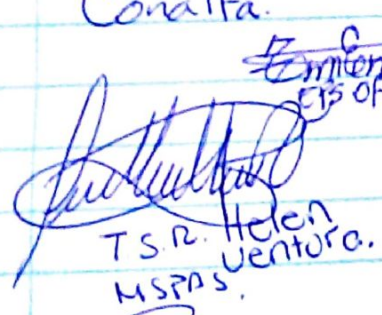 Conalfa.
EPS OF
T.S.R. Helen
Ventura.
MSPAS.